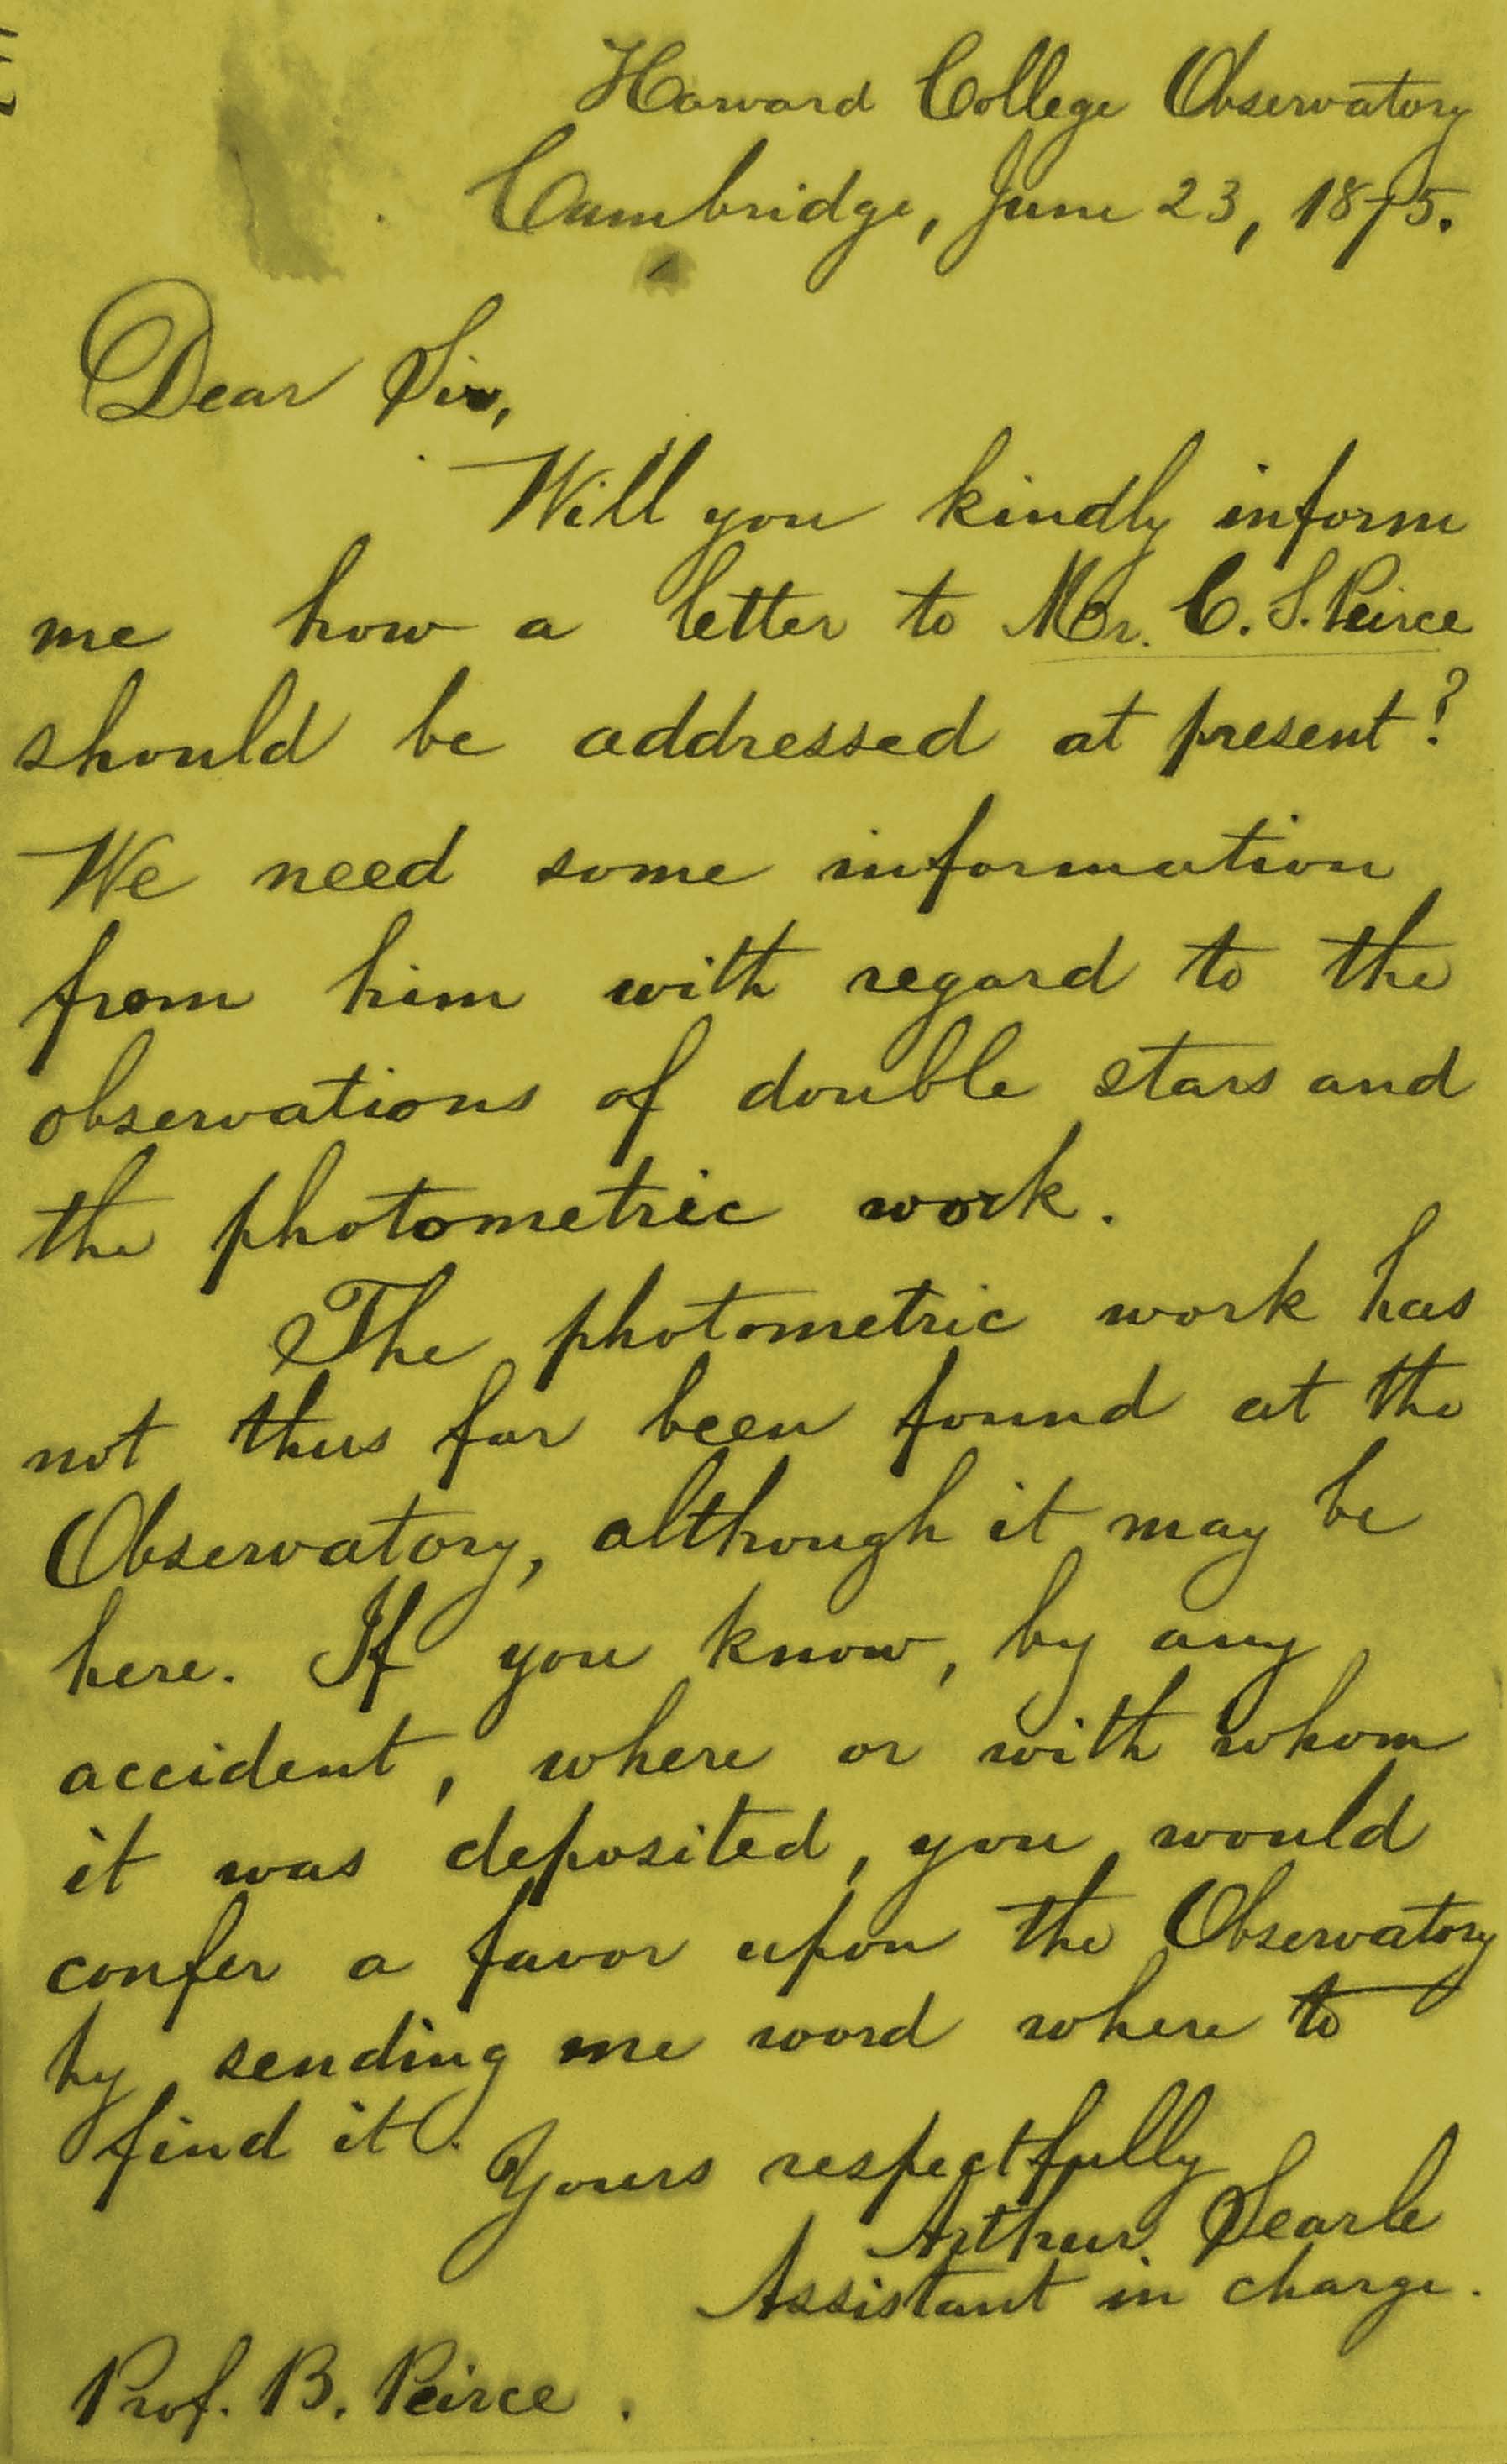 Harvard College Observatory
Cambridge, June 23, 1875.
Dear Sir,
Will you kindly inform
me how a letter to Mr. C. S. Peirce
should be addressed at present?
We need some information
from him with regard to the
observations of double stars and
the photometric work.
The photometric work has
not thus far been found at the
Observatory, although it may be
here. If you know, by any
accident, where or with whom
it was deposited, you would
confer a favor upon the Observatory
by sending me word where to
find it.
Yours respectfully
Arthur Searle
Assistant in charge.
Prof. B. Peirce.